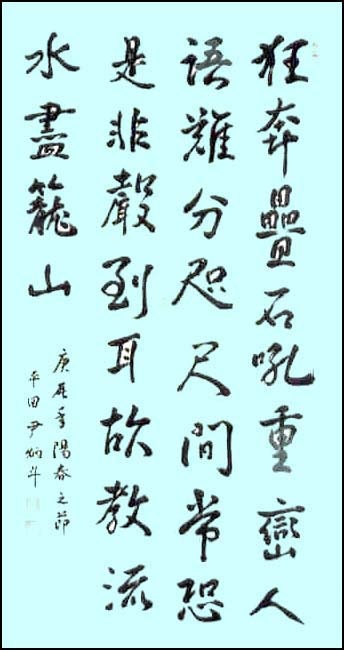 狂奔疊石吼重巒人
語難分咫尺間常恐
是非聲到耳故教流
水盡籠山
庚辰秊陽春之節
平田尹炳斗